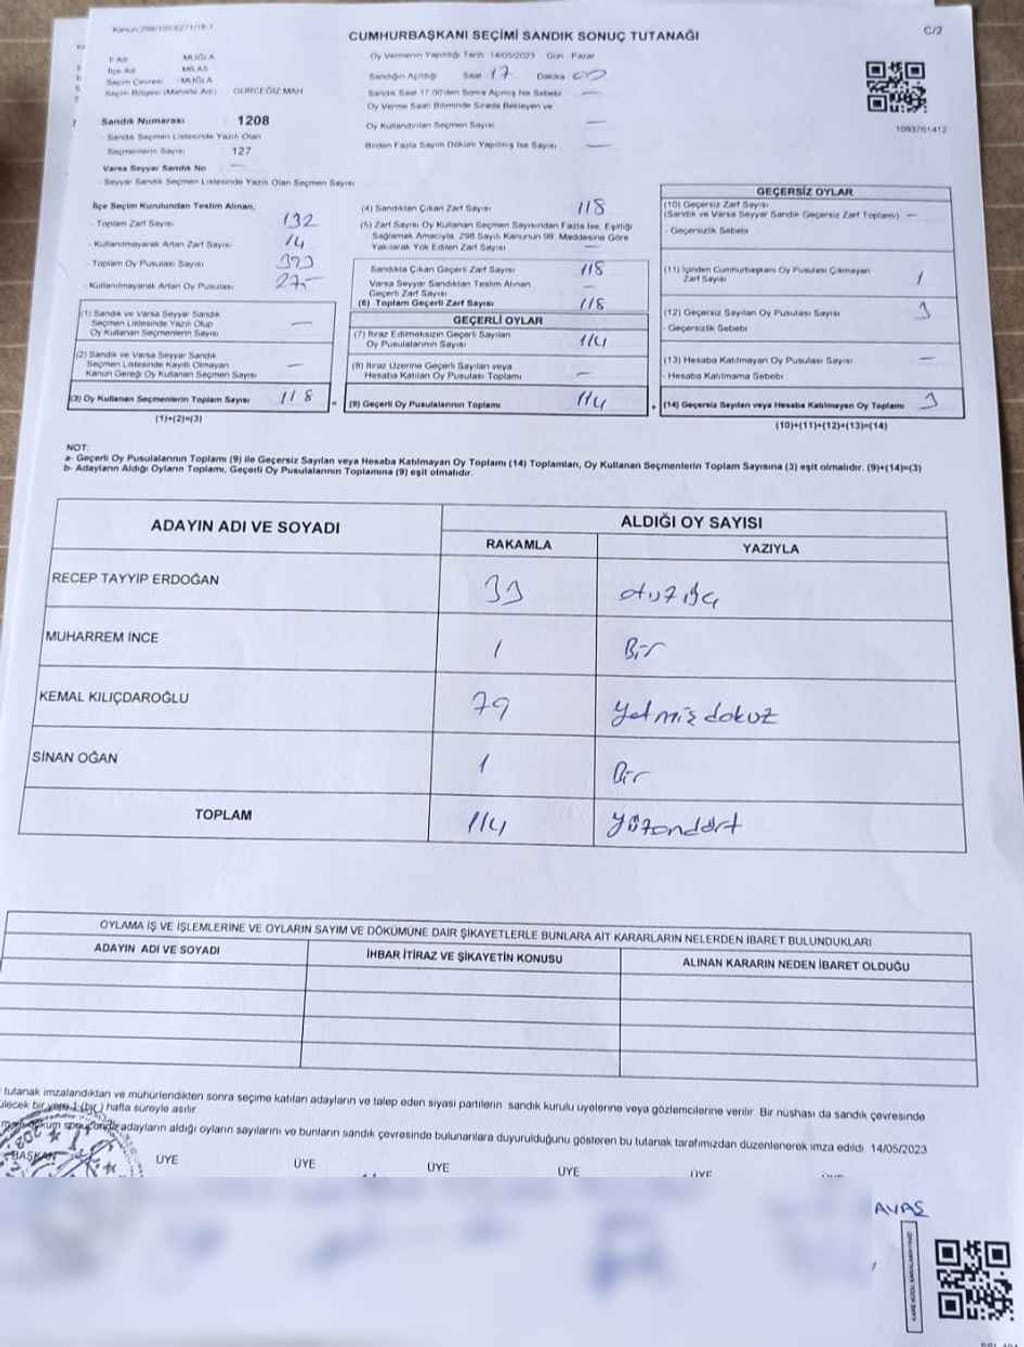 CUMHURBAŞKANI SEÇİMİ SANDIK SONUÇ TUTANAĞI
C/2
İl Adı MUĞLA
İlçe Adı MİLAS
Seçim Çevresi MUĞLA
Seçim Bölgesi (Mahalle Adı)
Sandık Numarası 1208
Sandık Seçmen Listesinde Yazılı Olan
Seçmenlerin Sayısı 127
Varsa Seyyar Sandık No
Seyyar Sandık Seçmen Listesinde Yazılı Olan Seçmen Sayısı
Oy Vermenin Yapıldığı Tarih 14/05/2023 Gün Pazar
Sandığın Açıldığı Saat 17 Dakika 00
Sandık Saat 17:00'den Sonra Açılmış İse Sebebi —
Oy Verme Saati Bitiminde Sırada Bekleyen ve
Oy Kullandırılan Seçmen Sayısı —
Birden Fazla Sayım Döküm Yapılmış İse Sayısı —
1093761412
İlçe Seçim Kurulundan Teslim Alınan;
Toplam Zarf Sayısı 132
Kullanılmayarak Artan Zarf Sayısı 14
Toplam Oy Pusulası Sayısı
Kullanılmayarak Artan Oy Pusulası
(1) Sandık ve Varsa Seyyar Sandık
Seçmen Listesinde Yazılı Olup
Oy Kullanan Seçmenlerin Sayısı —
(2) Sandık ve Varsa Seyyar Sandık
Seçmen Listesinde Kayıtlı Olmayan
Kanun Gereği Oy Kullanan Seçmen Sayısı —
(3) Oy Kullanan Seçmenlerin Toplam Sayısı 118
(1)+(2)=(3)
=
(4) Sandıktan Çıkan Zarf Sayısı 118
(5) Zarf Sayısı Oy Kullanan Seçmen Sayısından Fazla İse, Eşitliği
Sağlamak Amacıyla, 298 Sayılı Kanunun 98. Maddesine Göre
Yakılarak Yok Edilen Zarf Sayısı —
Sandıkta Çıkan Geçerli Zarf Sayısı 118
Varsa Seyyar Sandıktan Teslim Alınan
Geçerli Zarf Sayısı —
(6) Toplam Geçerli Zarf Sayısı 118
GEÇERLİ OYLAR
(7) İtiraz Edilmeksizin Geçerli Sayılan
Oy Pusulalarının Sayısı 114
(8) İtiraz Üzerine Geçerli Sayılan veya
Hesaba Katılan Oy Pusulası Toplamı —
(9) Geçerli Oy Pusulalarının Toplamı 114
+
GEÇERSİZ OYLAR
(10) Geçersiz Zarf Sayısı
(Sandık ve Varsa Seyyar Sandık Geçersiz Zarf Toplamı) —
- Geçersizlik Sebebi
(11) İçinden Cumhurbaşkanı Oy Pusulası Çıkmayan
Zarf Sayısı 1
(12) Geçersiz Sayılan Oy Pusulası Sayısı 3
- Geçersizlik Sebebi
(13) Hesaba Katılmayan Oy Pusulası Sayısı —
- Hesaba Katılmama Sebebi
(14) Geçersiz Sayılan veya Hesaba Katılmayan Oy Toplamı 3
(10)+(11)+(12)+(13)=(14)
NOT:
a- Geçerli Oy Pusulalarının Toplamı (9) ile Geçersiz Sayılan veya Hesaba Katılmayan Oy Toplamı (14) Toplamları, Oy Kullanan Seçmenlerin Toplam Sayısına (3) eşit olmalıdır. (9)+(14)=(3)
b- Adayların Aldığı Oyların Toplamı, Geçerli Oy Pusulalarının Toplamına (9) eşit olmalıdır.
ADAYIN ADI VE SOYADI ALDIĞI OY SAYISI
RAKAMLA YAZIYLA
RECEP TAYYİP ERDOĞAN 33 otuz üç
MUHARREM İNCE 1 Bir
KEMAL KILIÇDAROĞLU 79 yetmiş dokuz
SİNAN OĞAN 1 Bir
TOPLAM 114 yüzondört
OYLAMA İŞ VE İŞLEMLERİNE VE OYLARIN SAYIM VE DÖKÜMÜNE DAİR ŞİKAYETLERLE BUNLARA AİT KARARLARIN NELERDEN İBARET BULUNDUKLARI
ADAYIN ADI VE SOYADI İHBAR İTİRAZ VE ŞİKAYETİN KONUSU ALINAN KARARIN NEDEN İBARET OLDUĞU
tutanak imzalandıktan ve mühürlendikten sonra seçime katılan adayların ve talep eden siyasi partilerin sandık kurulu üyelerine veya gözlemcilerine verilir. Bir nüshası da sandık çevresinde
bir yere 1 (bir) hafta süreyle asılır.
adayların aldığı oyların sayılarını ve bunların sandık çevresinde bulunanlara duyurulduğunu gösteren bu tutanak tarafımızdan düzenlenerek imza edildi. 14/05/2023
BAŞKAN ÜYE ÜYE ÜYE ÜYE ÜYE
AVAŞ